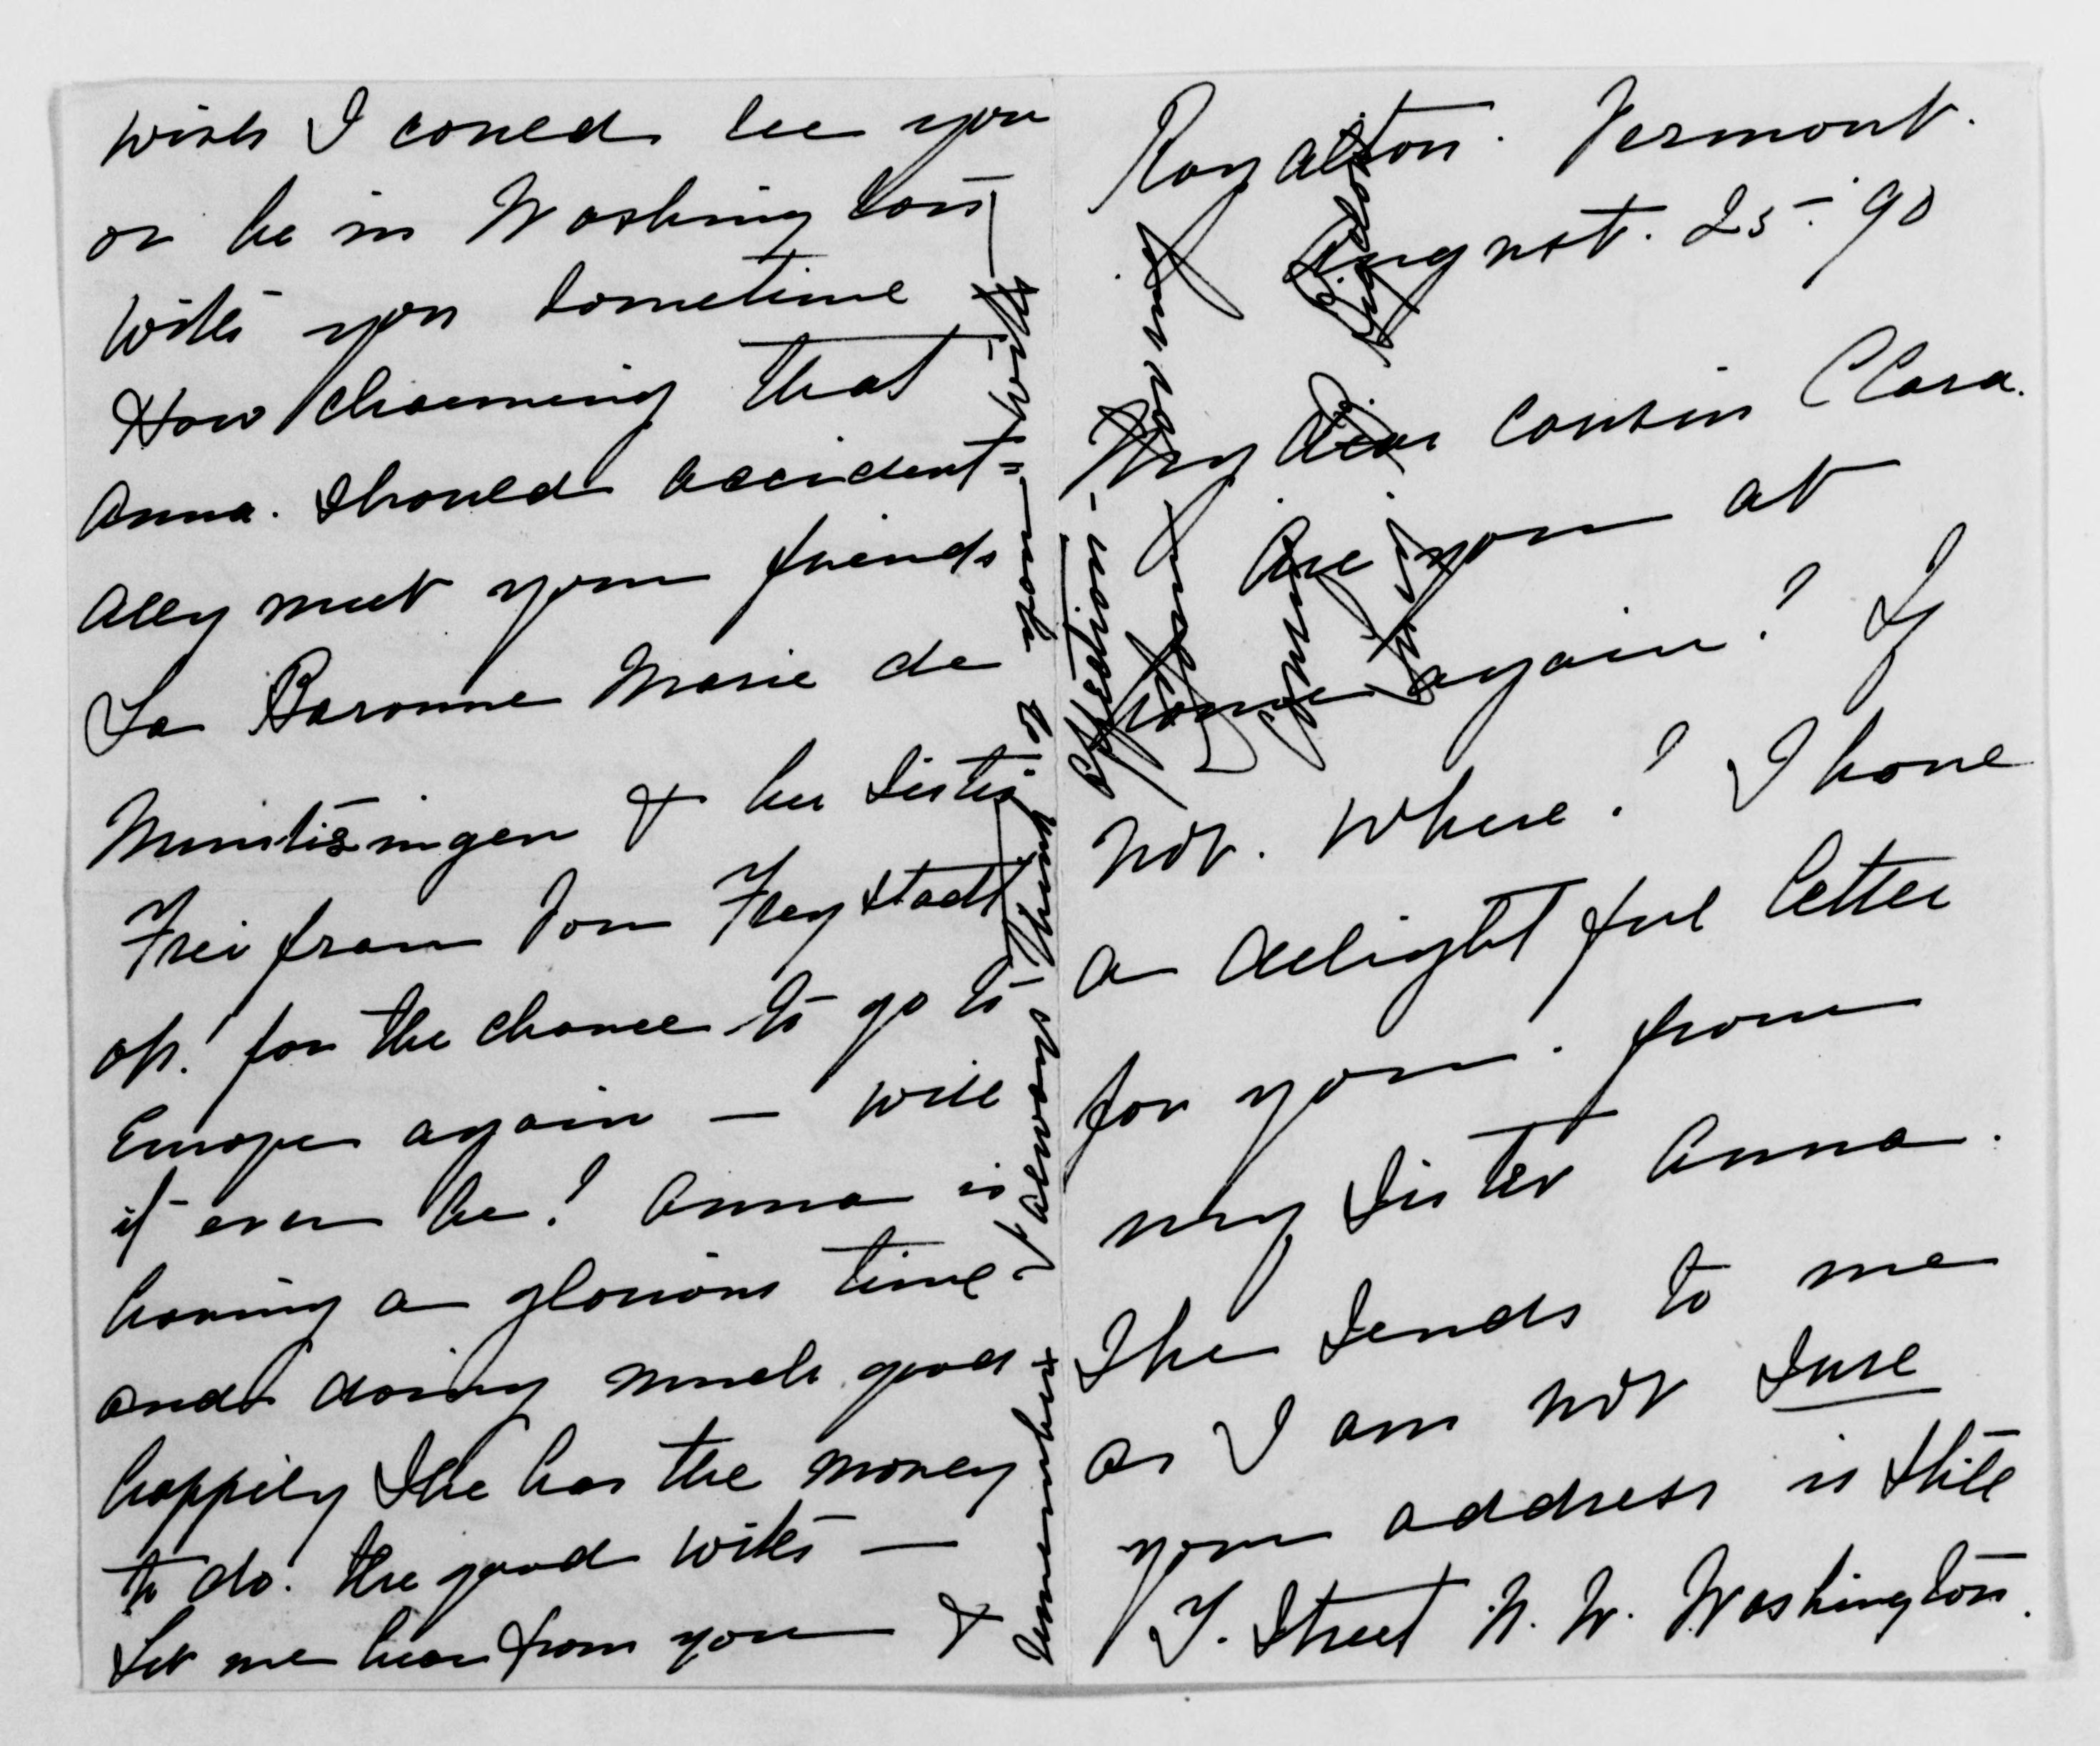 Royalton. Vermont.
August. 25-. 90
My dear Cousin Clara.
Are you at
home again? If
not. Where? I have
a delightful letter
for you. from
my Sister Anna.
She sends to me
as I am not sure
your address is still
T. Street N. W. Washington.
wish I could see you
or be in Washington
with you sometime
How charming that
Anna. should accident=
ally meet your friends
La Baronne Marie de
& her sister
Frei frau von Freystadt
oh! for the chance to go to
Europe again — will
it ever be! Anna is
having a glorious time
and doing much good
happily she has the money
to do. the good with —
Let me hear from you &
remember
always
yours
affection-